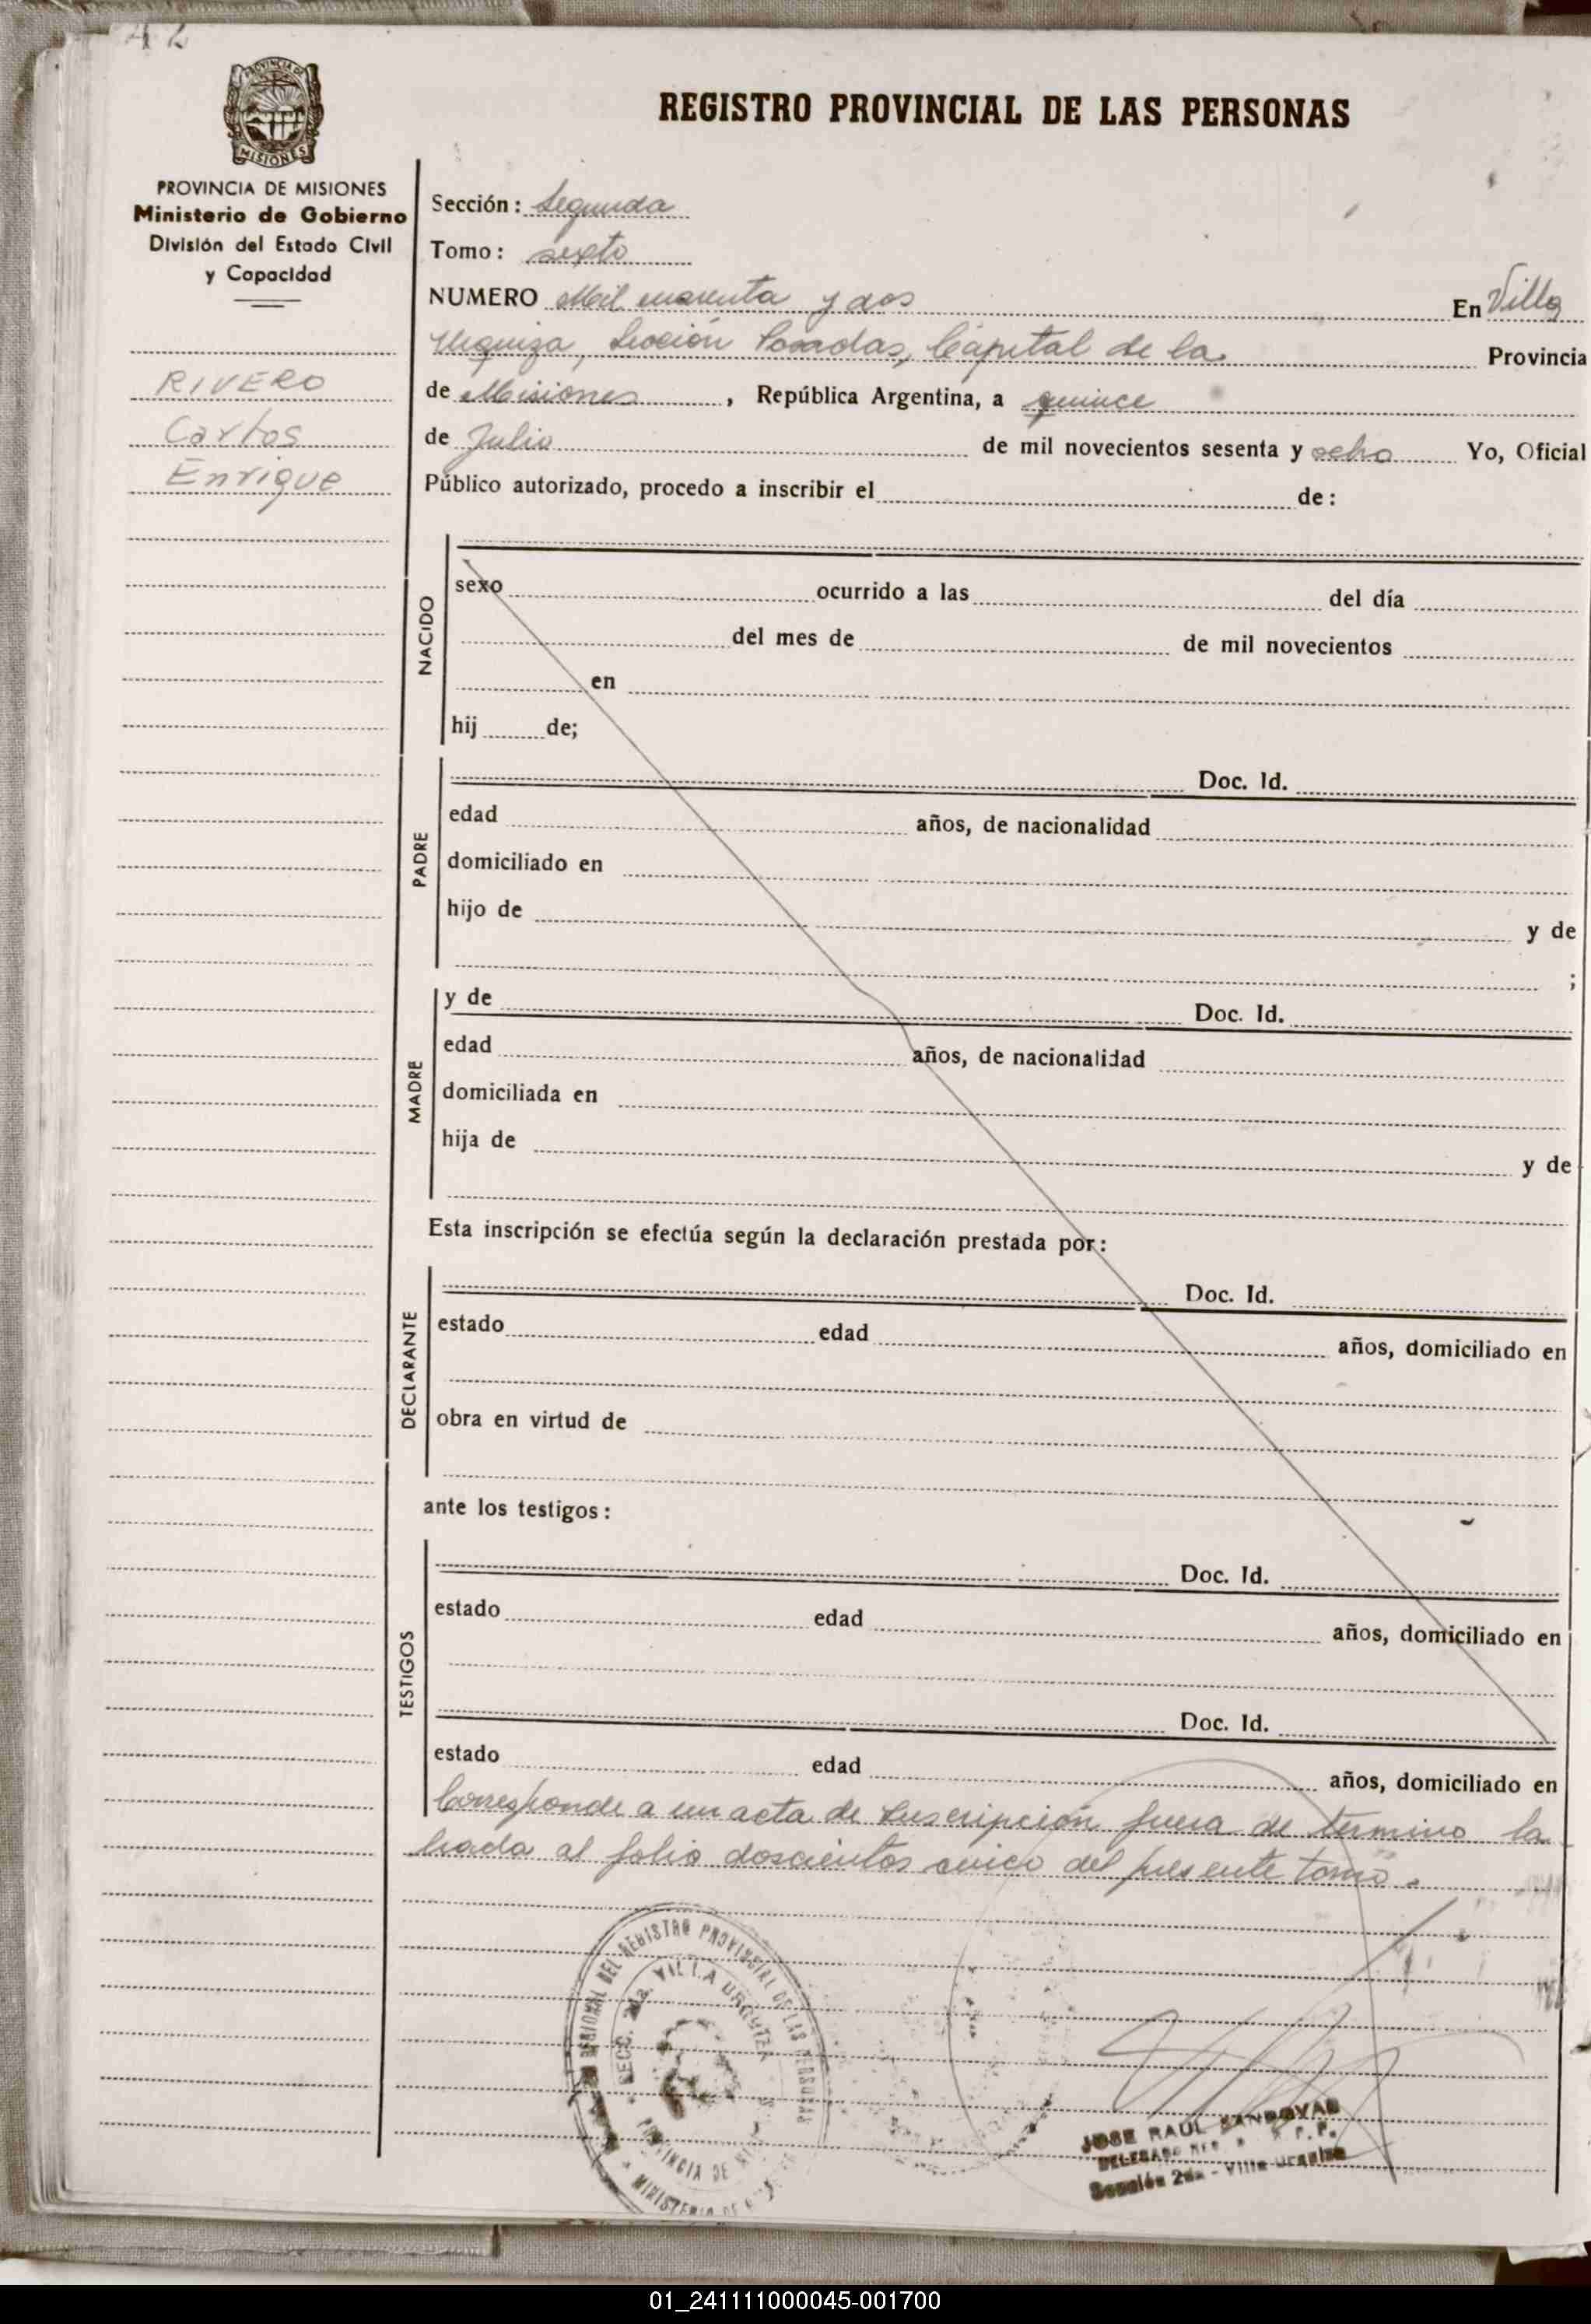 42
PROVINCIA DE
MISIONES
REGISTRO PROVINCIAL DE LAS PERSONAS
PROVINCIA DE MISIONES
Ministerio de Gobierno
División del Estado Civil
y Capacidad
RIVERO
Carlos
Enrique
Sección: Segunda
Tomo: sexto
NUMERO Mil cuarenta y dos En Villa
Urquiza, Sección Posadas, Capital de la Provincia
de Misiones, República Argentina, a quince
de Julio de mil novecientos sesenta y ocho Yo, Oficial
Público autorizado, procedo a inscribir el de:
NACIDO
sexo ocurrido a las del día
del mes de de mil novecientos
en
hij de;
PADRE
Doc. Id.
edad años, de nacionalidad
domiciliado en
hijo de y de
;
MADRE
y de Doc. Id.
edad años, de nacionalidad
domiciliada en
hija de y de
Esta inscripción se efectúa según la declaración prestada por:
DECLARANTE
Doc. Id.
estado edad años, domiciliado en
obra en virtud de
ante los testigos:
TESTIGOS
Doc. Id.
estado edad años, domiciliado en
Doc. Id.
estado edad años, domiciliado en
Corresponde a un acta de Inscripción fuera de termino la
brada al folio doscientos cinco del presente tomo.
REGIONAL DEL REGISTRO PROVINCIAL DE LAS PERSONAS
SECC. 2da. VILLA URQUIZA
PROVINCIA DE
MINISTERIO DE
JOSE RAUL SANDOVAL
DELEGADO R. P. P.
Sección 2da - Villa Urquiza
01_241111000045-001700